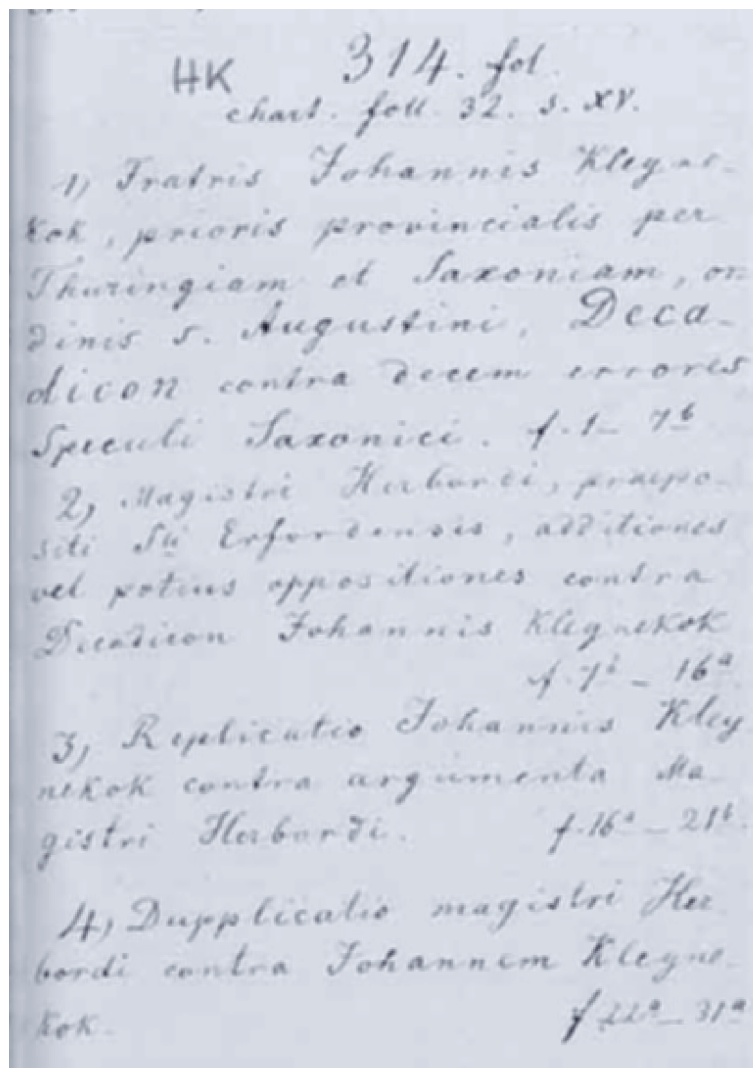 HK 314. fol.
chart. foll. 32. s. XV.
1) Fratris Johannis Kleyne-
kok, prioris provincialis per
Thuringiam et Saxoniam, or-
dinis s. Augustini, Deca-
dicon contra decem errores
Speculi Saxonici. f. 1 – 7b
2) Magistri Herbordi, praepo-
siti Erfordensis, additiones
vel potius oppositiones contra
Decadicon Johannis Kleynekok
f. 7b – 16a
3) Replicatio Johannis Kley
nekok contra argumenta Ma-
gistri Herbordi. f. 16a – 21b.
4) Dupplicatio magistri Her
bordi contra Johannem Kleyne-
kok. f 22a – 31a